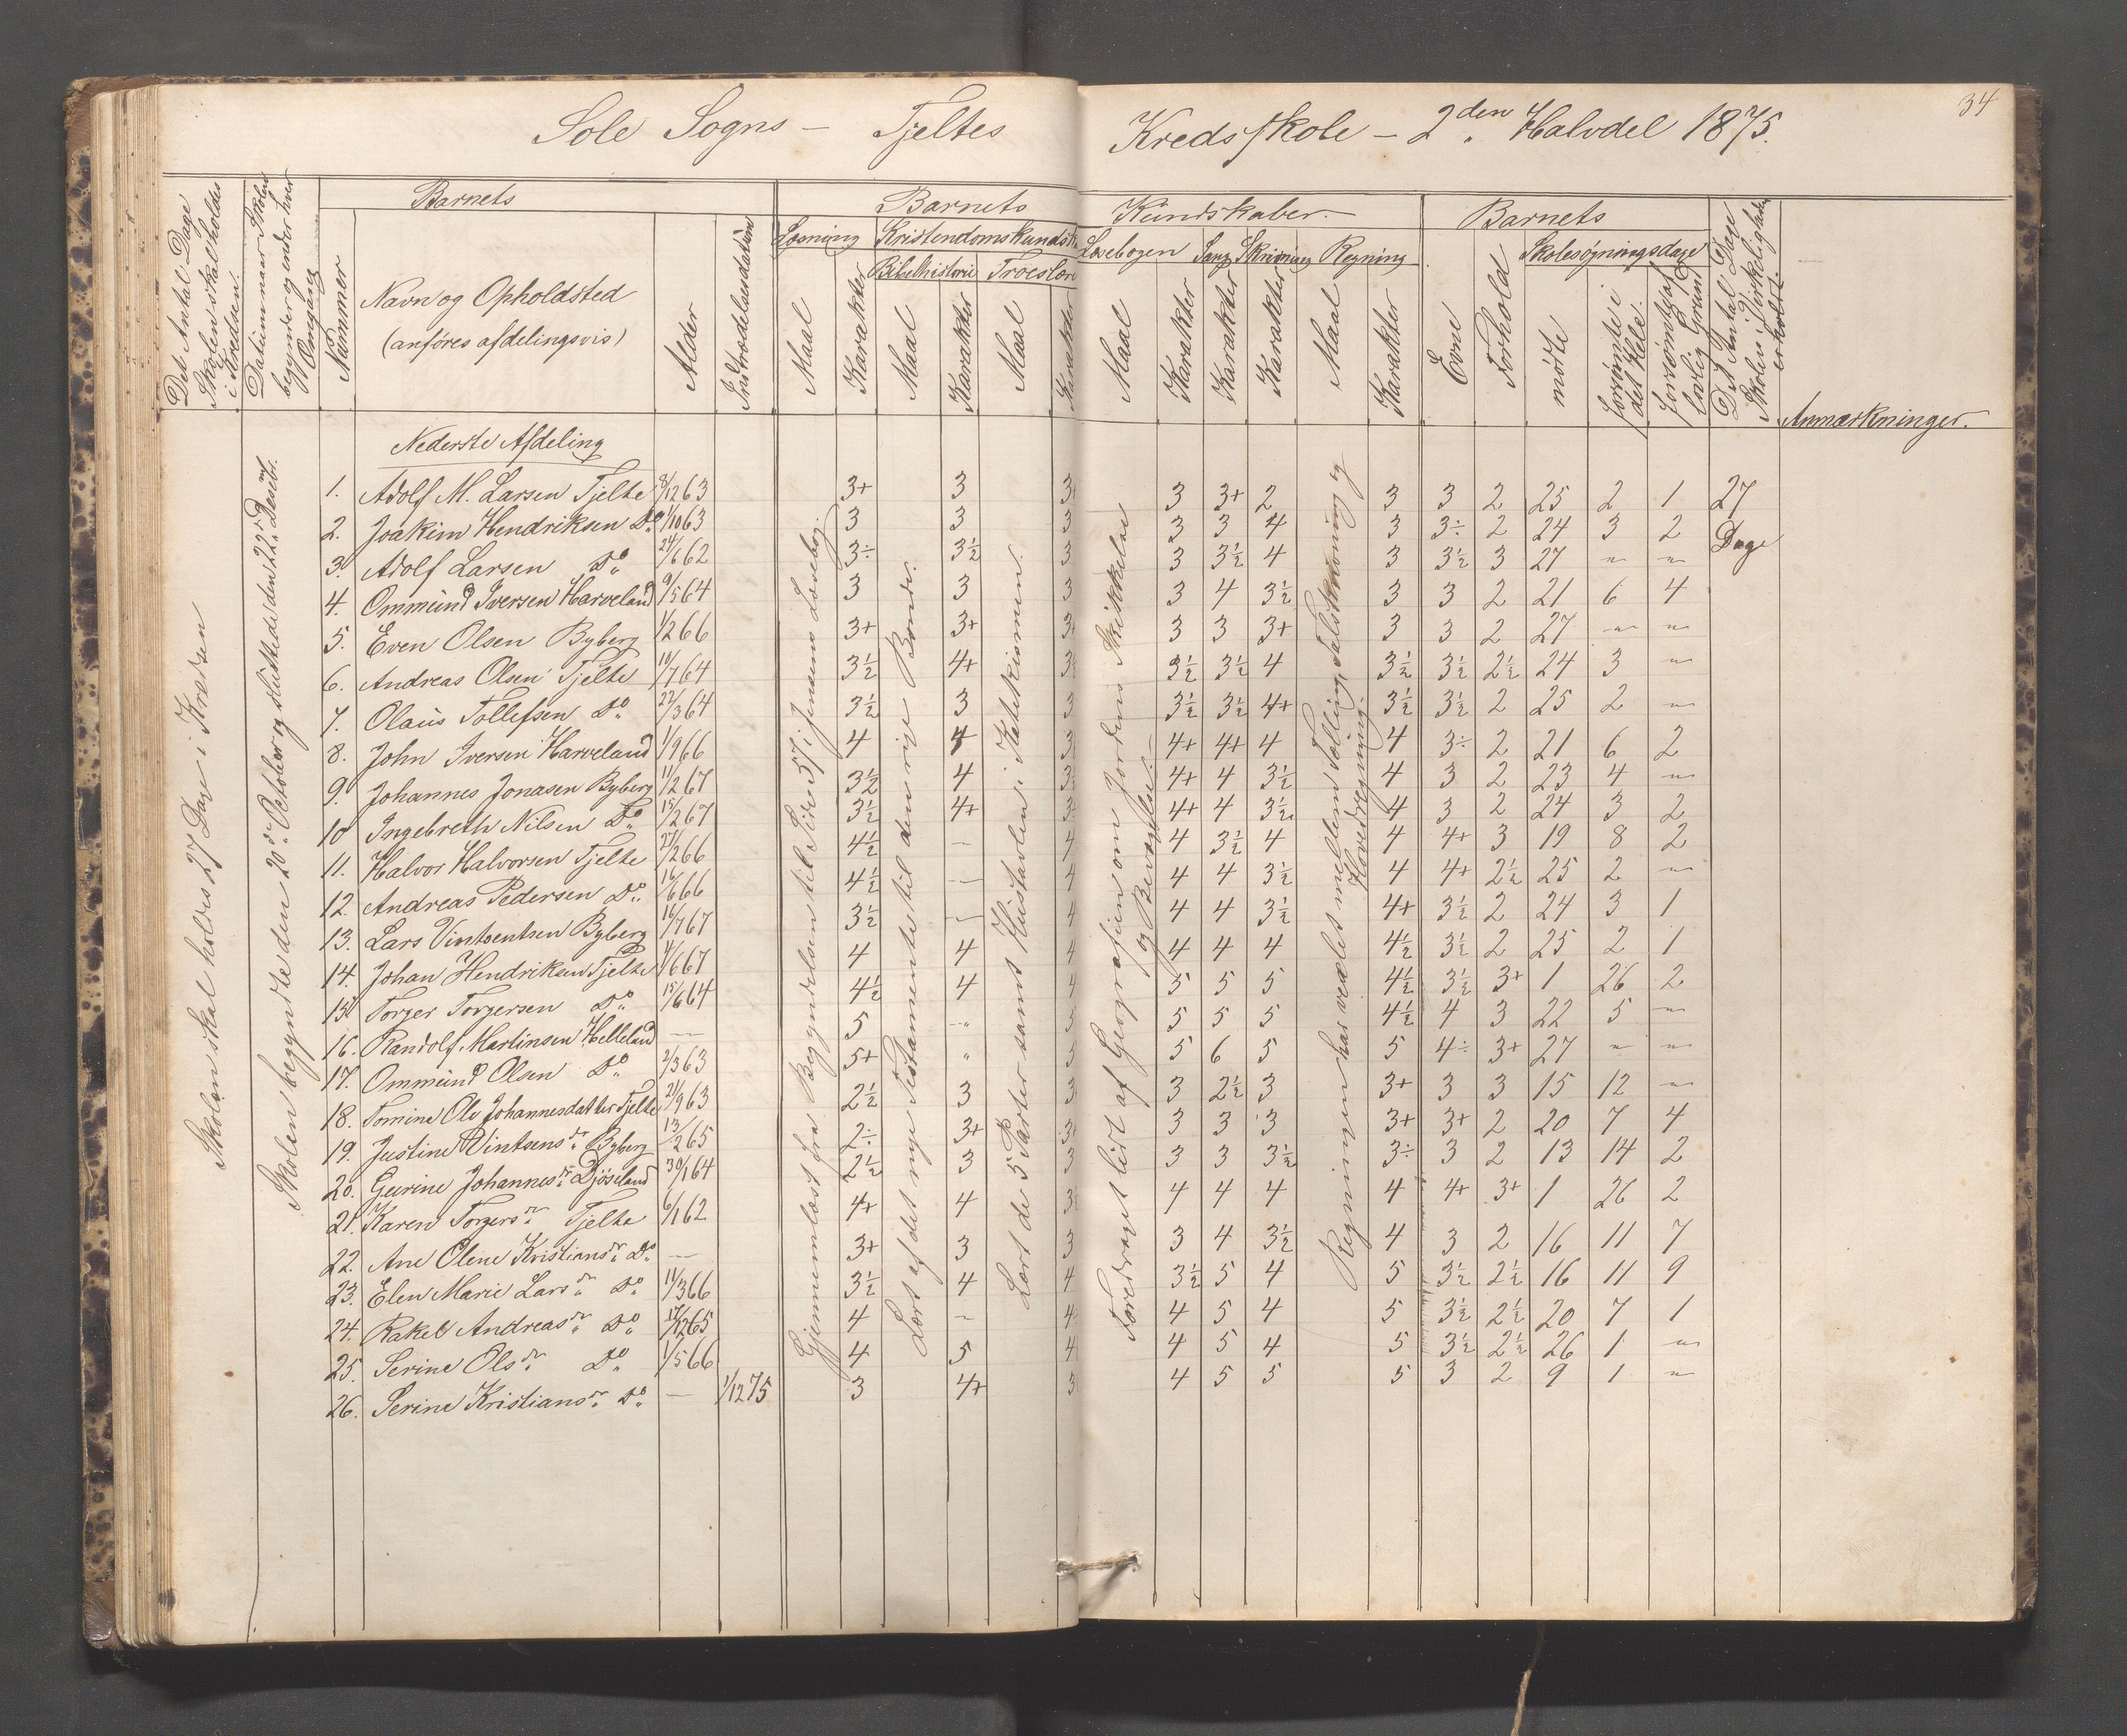 34
Sole Sogns – Tjeltes Kredsskole – 2den Halvdel 1875.
Det Antal Dage Skolen skal holdes i Kredsen.
Datum naar Skolen begynder og ender hver Omgang
Barnets
Nummer
Navn og Opholdsted
(anføres afdelingsvis)
Alder
Indtrædelsesdatum
Barnets Kundskaber.
Læsning Kristendomskundsk
Bibelhistorie Troeslære
Maal Karakter Maal Karakter Maal Karakter
Læsebogen Sang Skrivning Regning
Maal Karakter Karakter Karakter Maal Karakter
Barnets
Evne Forhold
Skolesøgningsdage
mødte
forsømte i det Hele.
forsømte af lovlig Grund
Det Antal Dage Skolen i Virkeligheden er holdt.
Anmærkninger.
Skolen skal holdes 27 Dage i Kredsen
Skolen begyndte den 20de October og sluttede den 22de Decbr.
Nederste Afdeling
Gjennemlæst fra Begyndelsen til Side 57 i Jensens Læsebog.
Lært af det nye Testamente til den rige Bonde.
Lært de 5 Parter samt Hustavlen i Katekismen.
Foredraget lidt af Geografien om Jordens Skikkelse og Bevægelse. –
Regningen har vexlet mellem Tælling, Talskrivning og Hovedregning.
1. Adolf M. Larsen Tjelte 8/12 63 3+ 3 3+ 3 3+ 2 3 3 2 25 2 1 27
2. Joakim Hendriksen Do 1/10 63 3 3 3 3 3 4 3 3÷ 2 24 3 2 Dage
3. Adolf Larsen Do 24/6 62 3÷ 3½ 3 3 3½ 4 3 3½ 3 27 " "
4. Ommund Iversen Harveland 9/5 64 3 3 3 3 4 3½ 3 3 2 21 6 4
5. Even Olsen Byberg 1/2 66 3+ 3+ 3+ 3 3 3+ 3 3 2 27 " "
6. Andreas Olsen Tjelte 10/7 64 3½ 4+ 3 3½ 3½ 4 3½ 3½ 2½ 24 3 "
7. Olaus Tollefsen Do 22/3 64 3½ 3 3 3½ 3½ 4+ 3½ 3½ 2 25 2 "
8. John Iversen Harveland 1/9 66 4 4 3 4+ 4+ 4 4 3÷ 2 21 6 2
9. Johannes Jonasen Byberg 11/2 67 3½ 4 3 4+ 4 3½ 4 3 2 23 4 "
10 Ingebreth Nilsen Do 15/2 67 3½ 4+ 3 4+ 4 3½ 4 3 2 24 3 2
11. Halvor Halvorsen Tjelte 27/2 66 4½ – 4 4 3½ 4 4 4+ 3 19 8 2
12. Andreas Pedersen Do 16/6 66 4½ – 4 4 4 3½ 4 4+ 2½ 25 2 "
13. Lars Vintsentsen Byberg 16/7 67 3½ – 4 4 4 3½ 4+ 3½ 2 24 3 1
14. Johan Hendriksen Tjelte 4/6 67 4 4 4 4 4 4 4½ 3½ 2 25 2 1
15 Torger Torgersen Do 15/6 64 4½ 4 4 5 5 5 4½ 3½ 3+ 1 26 2
16. Randolf Martinsen Helleland – 5 – 5 5 5 5 4½ 4 3 22 5 "
17. Ommund Olsen Do 2/3 63 5+ " 3 5 6 5 5 4÷ 3+ 27 " "
18. Tomine Ol. Johannesdatter Tjelte 21/9 63 2½ 3 3 3 2½ 3 3+ 3 3 15 12 "
19. Justine Vintsensdr Byberg 13/2 65 2÷ 3+ 3+ 3 3 3 3+ 3+ 2 20 7 4
20. Gurine Johannesdr Djøseland 30/1 64 2½ 3 3 3 3 3½ 3÷ 3 2 13 14 2
21. Karen Torgersdr Tjelte 6/1 62 4+ 4 3 4 4 4 4 4+ 3+ 1 26 2
22. Ane Olene Kristiansdr Do – 3+ 3 3 3 4 3½ 4 3 2 16 11 7
23. Elen Marie Larsdr Do 11/3 66 3½ 4 4 3½ 5 4 5 3½ 2½ 16 11 9
24. Rakel Andreasdr Do 17/12 65 4 – 4 4 5 4 5 3½ 2½ 20 7 1
25. Serine Olsdr Do 1/5 66 4 5 4 4 5 4 5 3½ 2½ 26 1 "
26. Serine Kristiansdr Do – 1/12 75 3 4+ 3 4 5 5 5 3 2 9 1 "